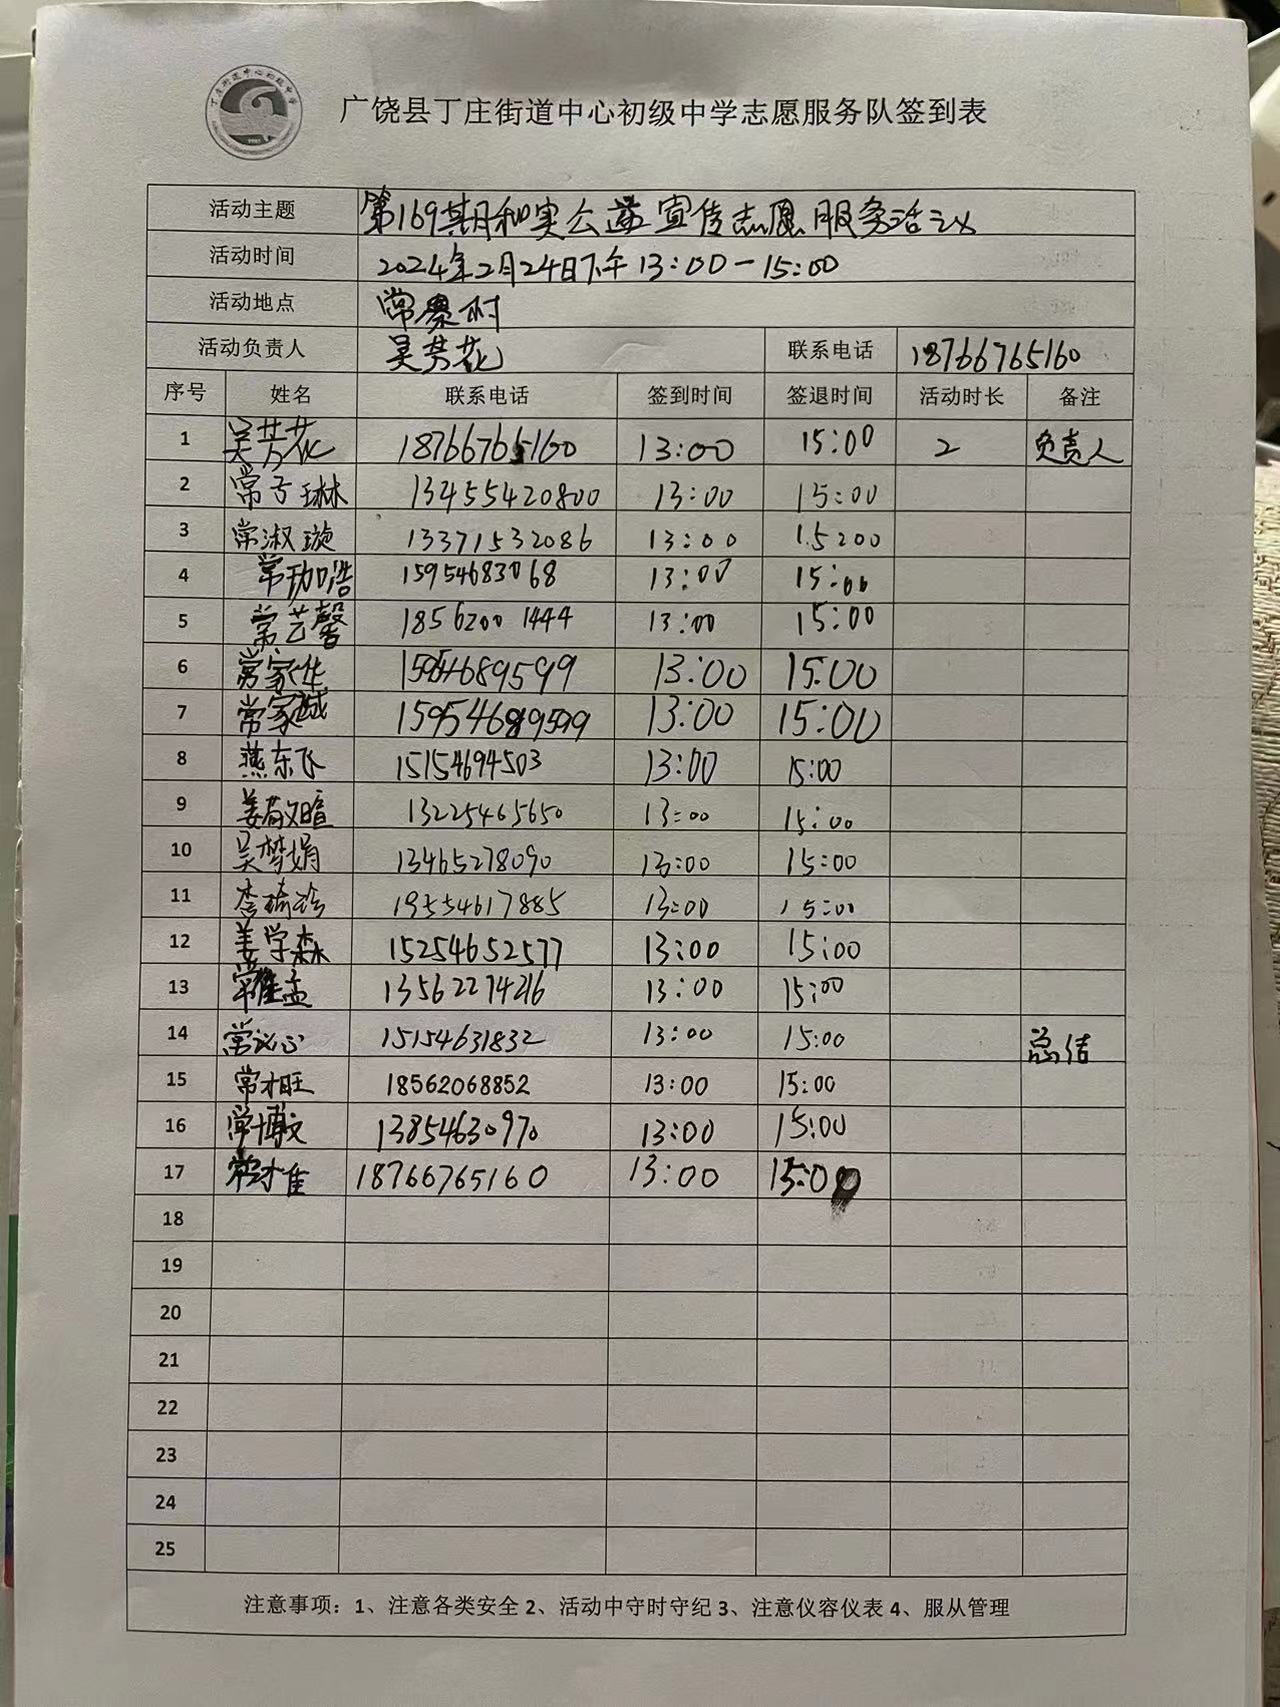 丁庄街道中心初级中学
广饶县丁庄街道中心初级中学志愿服务队签到表
活动主题 第169期和实公益宣传志愿服务活动
活动时间 2024年2月24日下午 13:00-15:00
活动地点 常寨村
活动负责人 吴芳花 联系电话 18766765160
序号 姓名 联系电话 签到时间 签退时间 活动时长 备注
1 吴芳花 18766765160 13:00 15:00 2 负责人
2 常子琳 13455420800 13:00 15:00
3 常淑璇 13371532086 13:00 15:00
4 常珈浩 15954683068 13:00 15:00
5 常艺馨 18562001444 13:00 15:00
6 常家华 15954689599 13:00 15:00
7 常家誠 15954689599 13:00 15:00
8 燕东飞 15154694503 13:00 15:00
9 姜敬暄 13225465650 13:00 15:00
10 吴梦娟 13465278090 13:00 15:00
11 李琦珍 19554617885 13:00 15:00
12 姜学森 15254652577 13:00 15:00
13 常佳孟 13562274216 13:00 15:00
14 常沁心 15154631832 13:00 15:00 总结
15 常相旺 18562068852 13:00 15:00
16 常博文 13854630970 13:00 15:00
17 常才佳 18766765160 13:00 15:00
18
19
20
21
22
23
24
25
注意事项：1、注意各类安全 2、活动中守时守纪 3、注意仪容仪表 4、服从管理